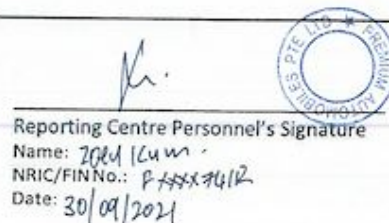 PREMIUM AUTOMOBILES PTE LTD
Reporting Centre Personnel's Signature
Name:
NRIC/FIN No.:
Date: 30/09/2021